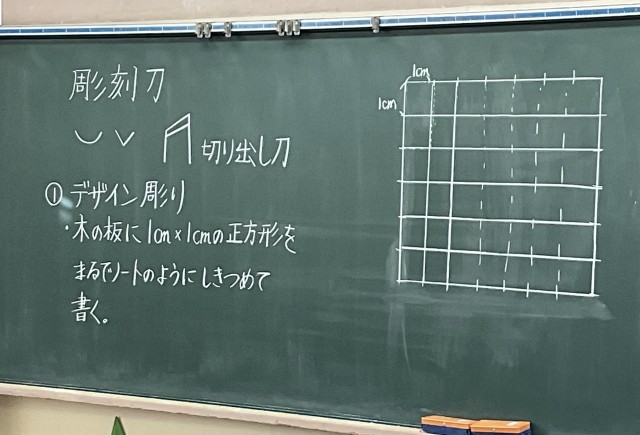 彫刻刀
切り出し刀
① デザイン彫り
・木の板に1cm×1cmの正方形を
まるでノートのようにしきつめて
書く。
1cm
1cm